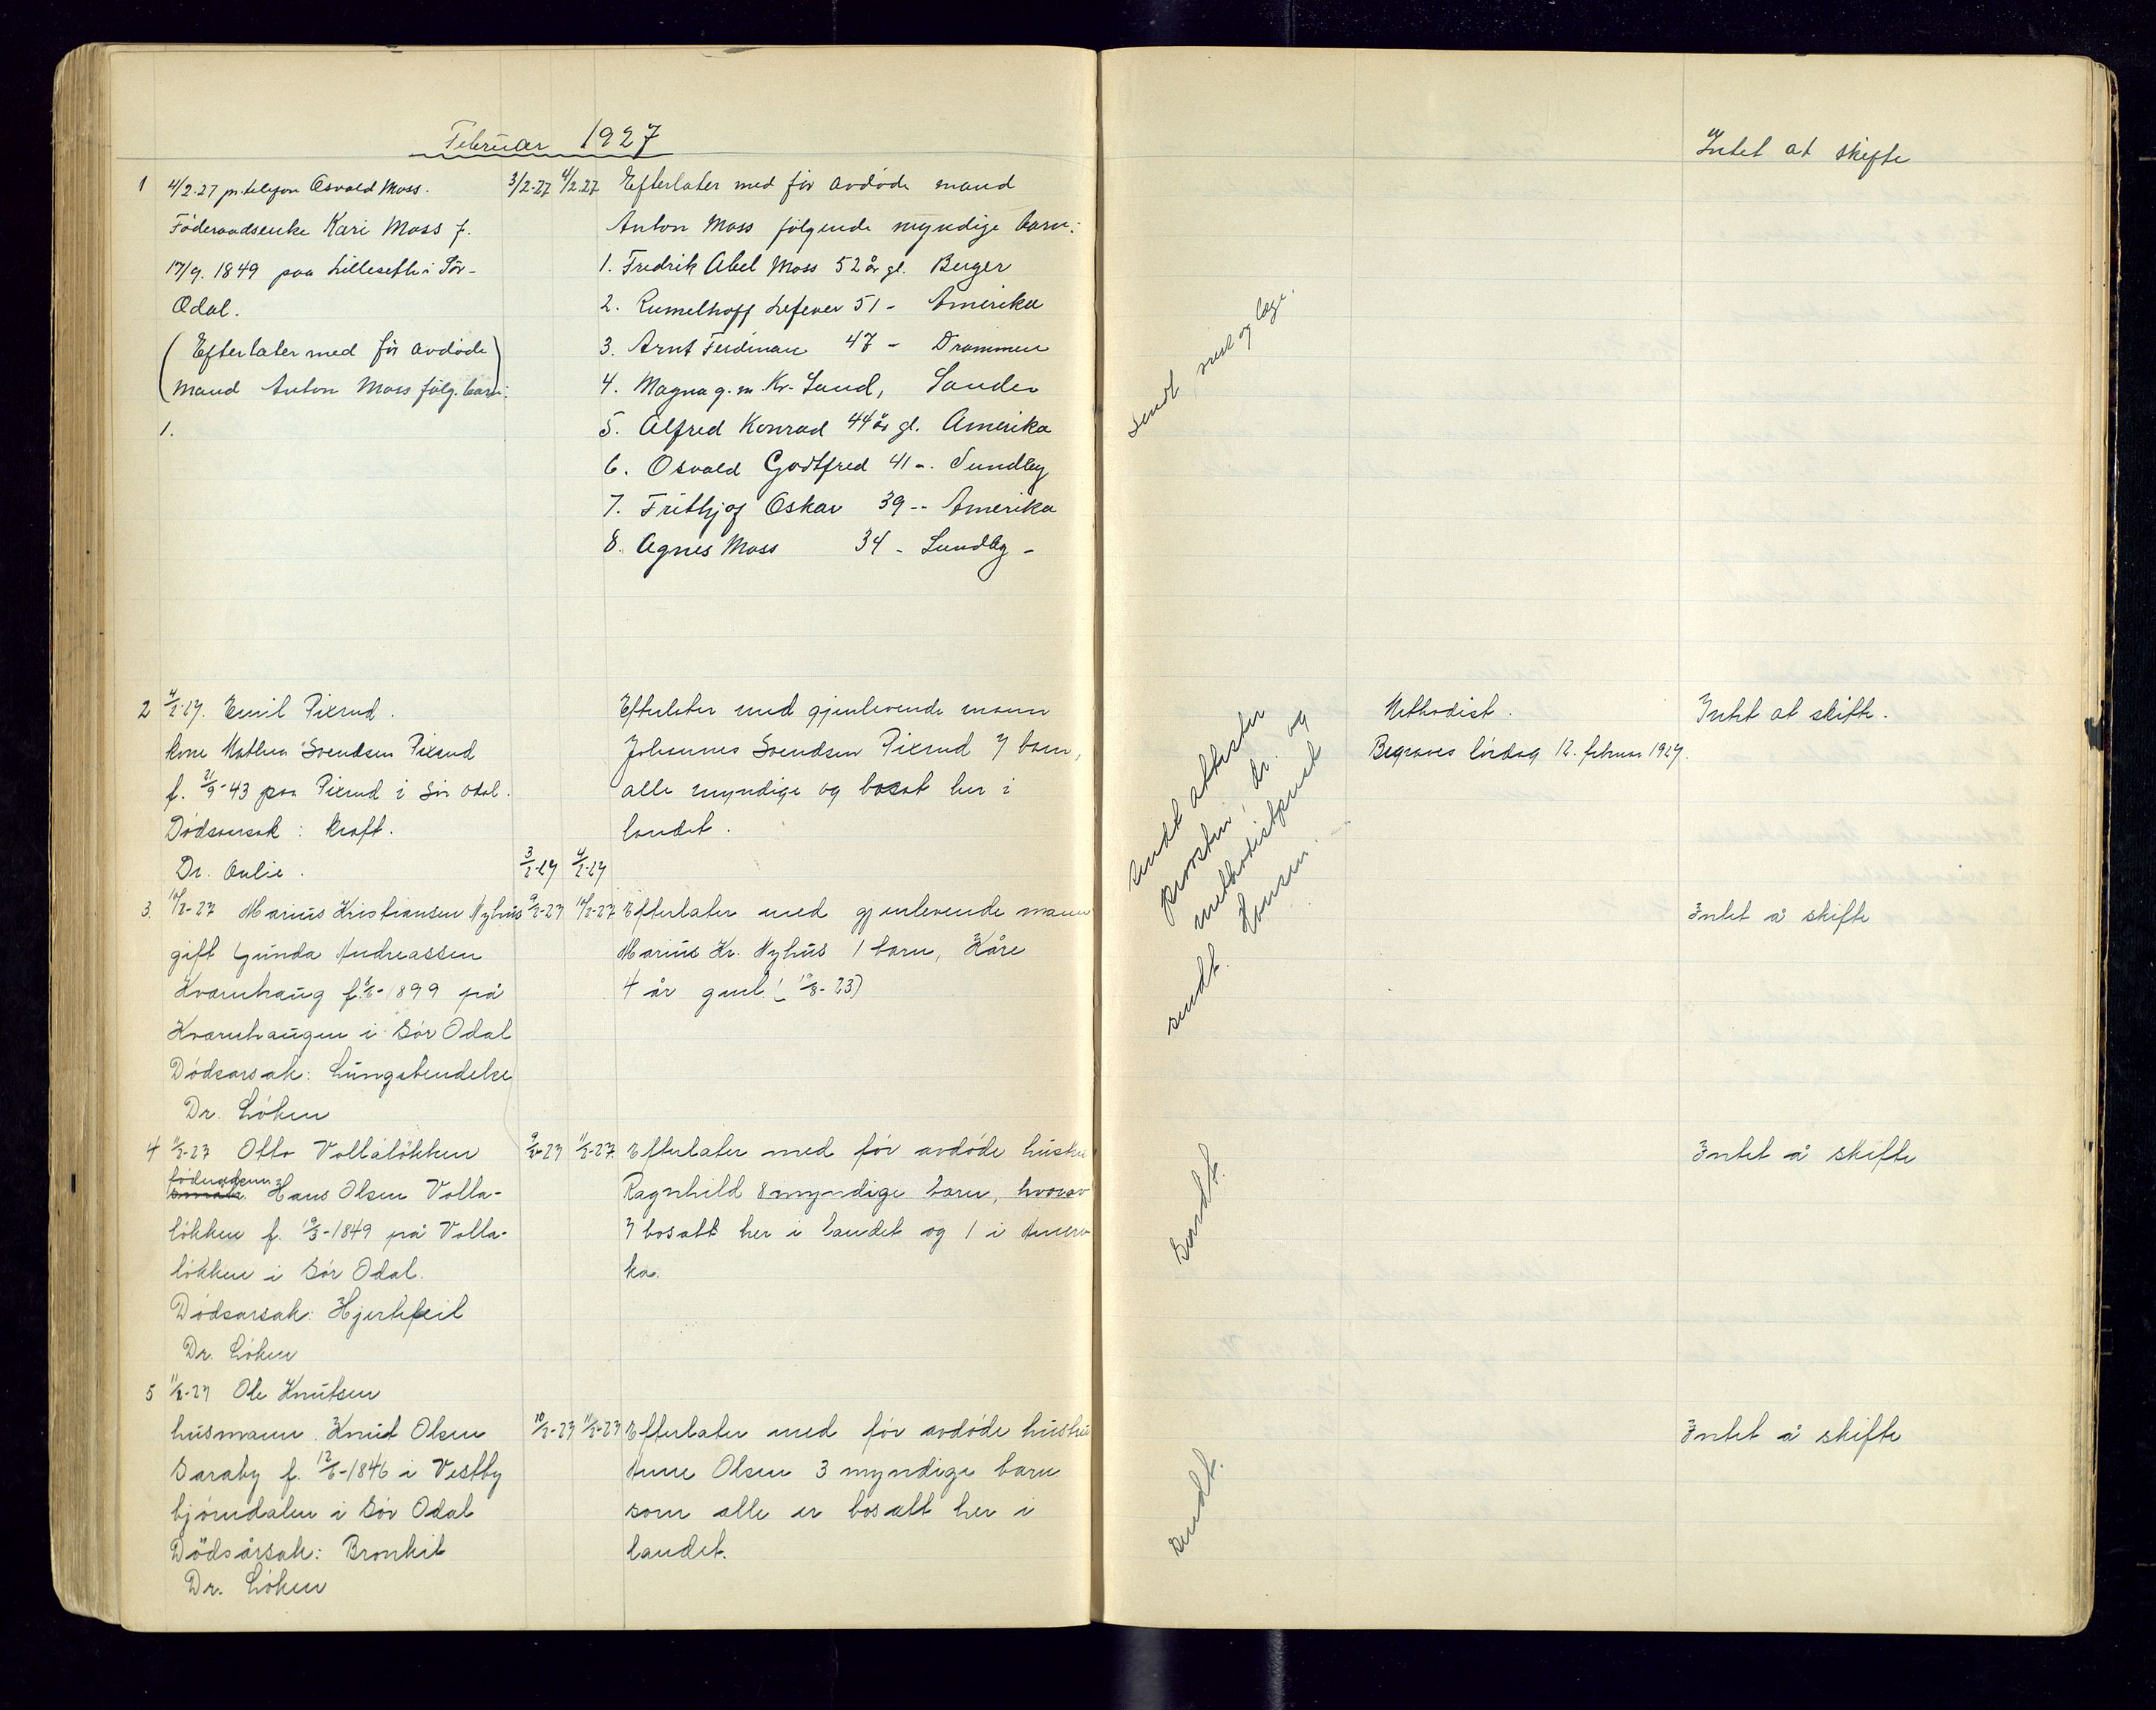 Februar 1927
Intet at skifte
1 4/2.27 pr. telefon Osvald Moss.
Föderaadsenke Kari Moss f.
17/9. 1849 paa Lilleseth i Sör-
Odal.
(Efterlater med för avdöde
mand Anton Moss fölg. barn:)
1.
3/2-27 4/2.27
Efterlater med för avdöde mand
Anton Moss følgende myndige barn:
1. Fredrik Abel Moss 52 år gl. Berger
2. Rumelhoff Lefever 51 - Amerika
3. Arnt Ferdinan 47 - Drammen
4. Magna g. m. Kr. Sand, Sander
5. Alfred Konrad 44 år gl. Amerika
6. Osvald Godtfred 41 -. Sundby
7. Fritbjof Oskar 39 -- Amerika
8. Agnes Moss 34 - Sundby -
Sendt og læge.
2 4/2-27. Emil Pixrud.
kone Mathea Svendsen Pixrud
f. 21/9-43 paa Pixrud i Sör Odal.
Dödsaarsak: Kræft.
Dr. Aulie.
3/2-27 4/2-27
Efterlater med gjenlevende mann
Johannes Svendsen Pixrud 7 barn,
alle myndige og bosat her i
landet.
sendt attester
prosten, dr. og
methodistprest
Hansen.
Methodist.
Begraves lördag 12. februar 1927.
Intet at skifte.
3. 14/2-27 Marius Kristiansen Nyhus
gift Gunda Andreassen
Kvarnhaug f. 1899 på
Kvarnhaugen i Sör Odal
Dödsarsak: Lungebendelse
Dr. Löken
9/2-27 14/2-27
Efterlater med gjenlevende mann
Marius Kr. Nyhus 1 barn, Kåre
4 år gml. (19/8-23)
sendt.
Intet å skifte
4 11/2-27 Otto Vollalökken
föderådsm. Hans Olsen Volla-
lökken f. 19/3-1849 på Volla-
lökken i Sör Odal.
Dödsarsak: Hjertefeil
Dr. Löken
9/2-27 11/2-27.
Efterlater med för avdöde hustru
Ragnhild 8 myndige barn, hvorav
7 bosatt her i landet og 1 i Ameri-
ka.
Sendt.
Intet å skifte
5 11/2-27 Ole Knutsen
husmann Knut Olsen
Saraby f. 12/6-1846 i Vestby
björndalen i Sör Odal
Dödsårsak: Bronkit
Dr. Löken
10/2-27 11/2-27
Efterlater med för avdöde hustru
Anne Olsen 3 myndige barn
som alle er bosatt her i
landet.
sendt.
Intet å skifte